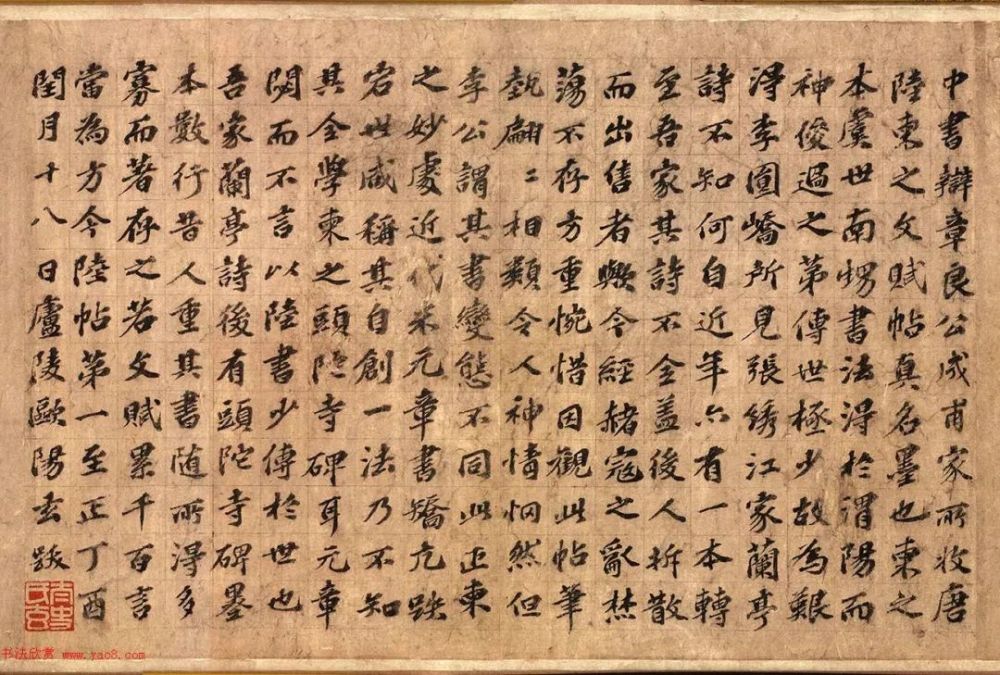 中書辯章良公成甫家所收唐
陸柬之文賦帖真名墨也柬之
本虞世南甥書法得於渭陽而
神俊過之第傳世極少故為艱
得李圓嶠所見張綉江家蘭亭
詩不知何自近年亦有一本轉
至吾家其詩不全蓋後人拆散
而出售者歟今經赭寇之亂焚
蕩不存方重惋惜因觀此帖筆
執翩〻相類令人神情惘然但
李公謂其書變態不同此正柬
之妙處近代米元章書矯亢跌
宕世咸稱其自創一法乃不知
其全學柬之頭陀寺碑耳元章
閟而不言以陸書少傳於世也
吾家蘭亭詩後有頭陀寺碑墨
本數行昔人重其書隨所得多
寡而著存之若文賦累千百言
當為方今陸帖第一至正丁酉
閏月十八日廬陵歐陽玄跋
书法欣赏 www.yac8.com